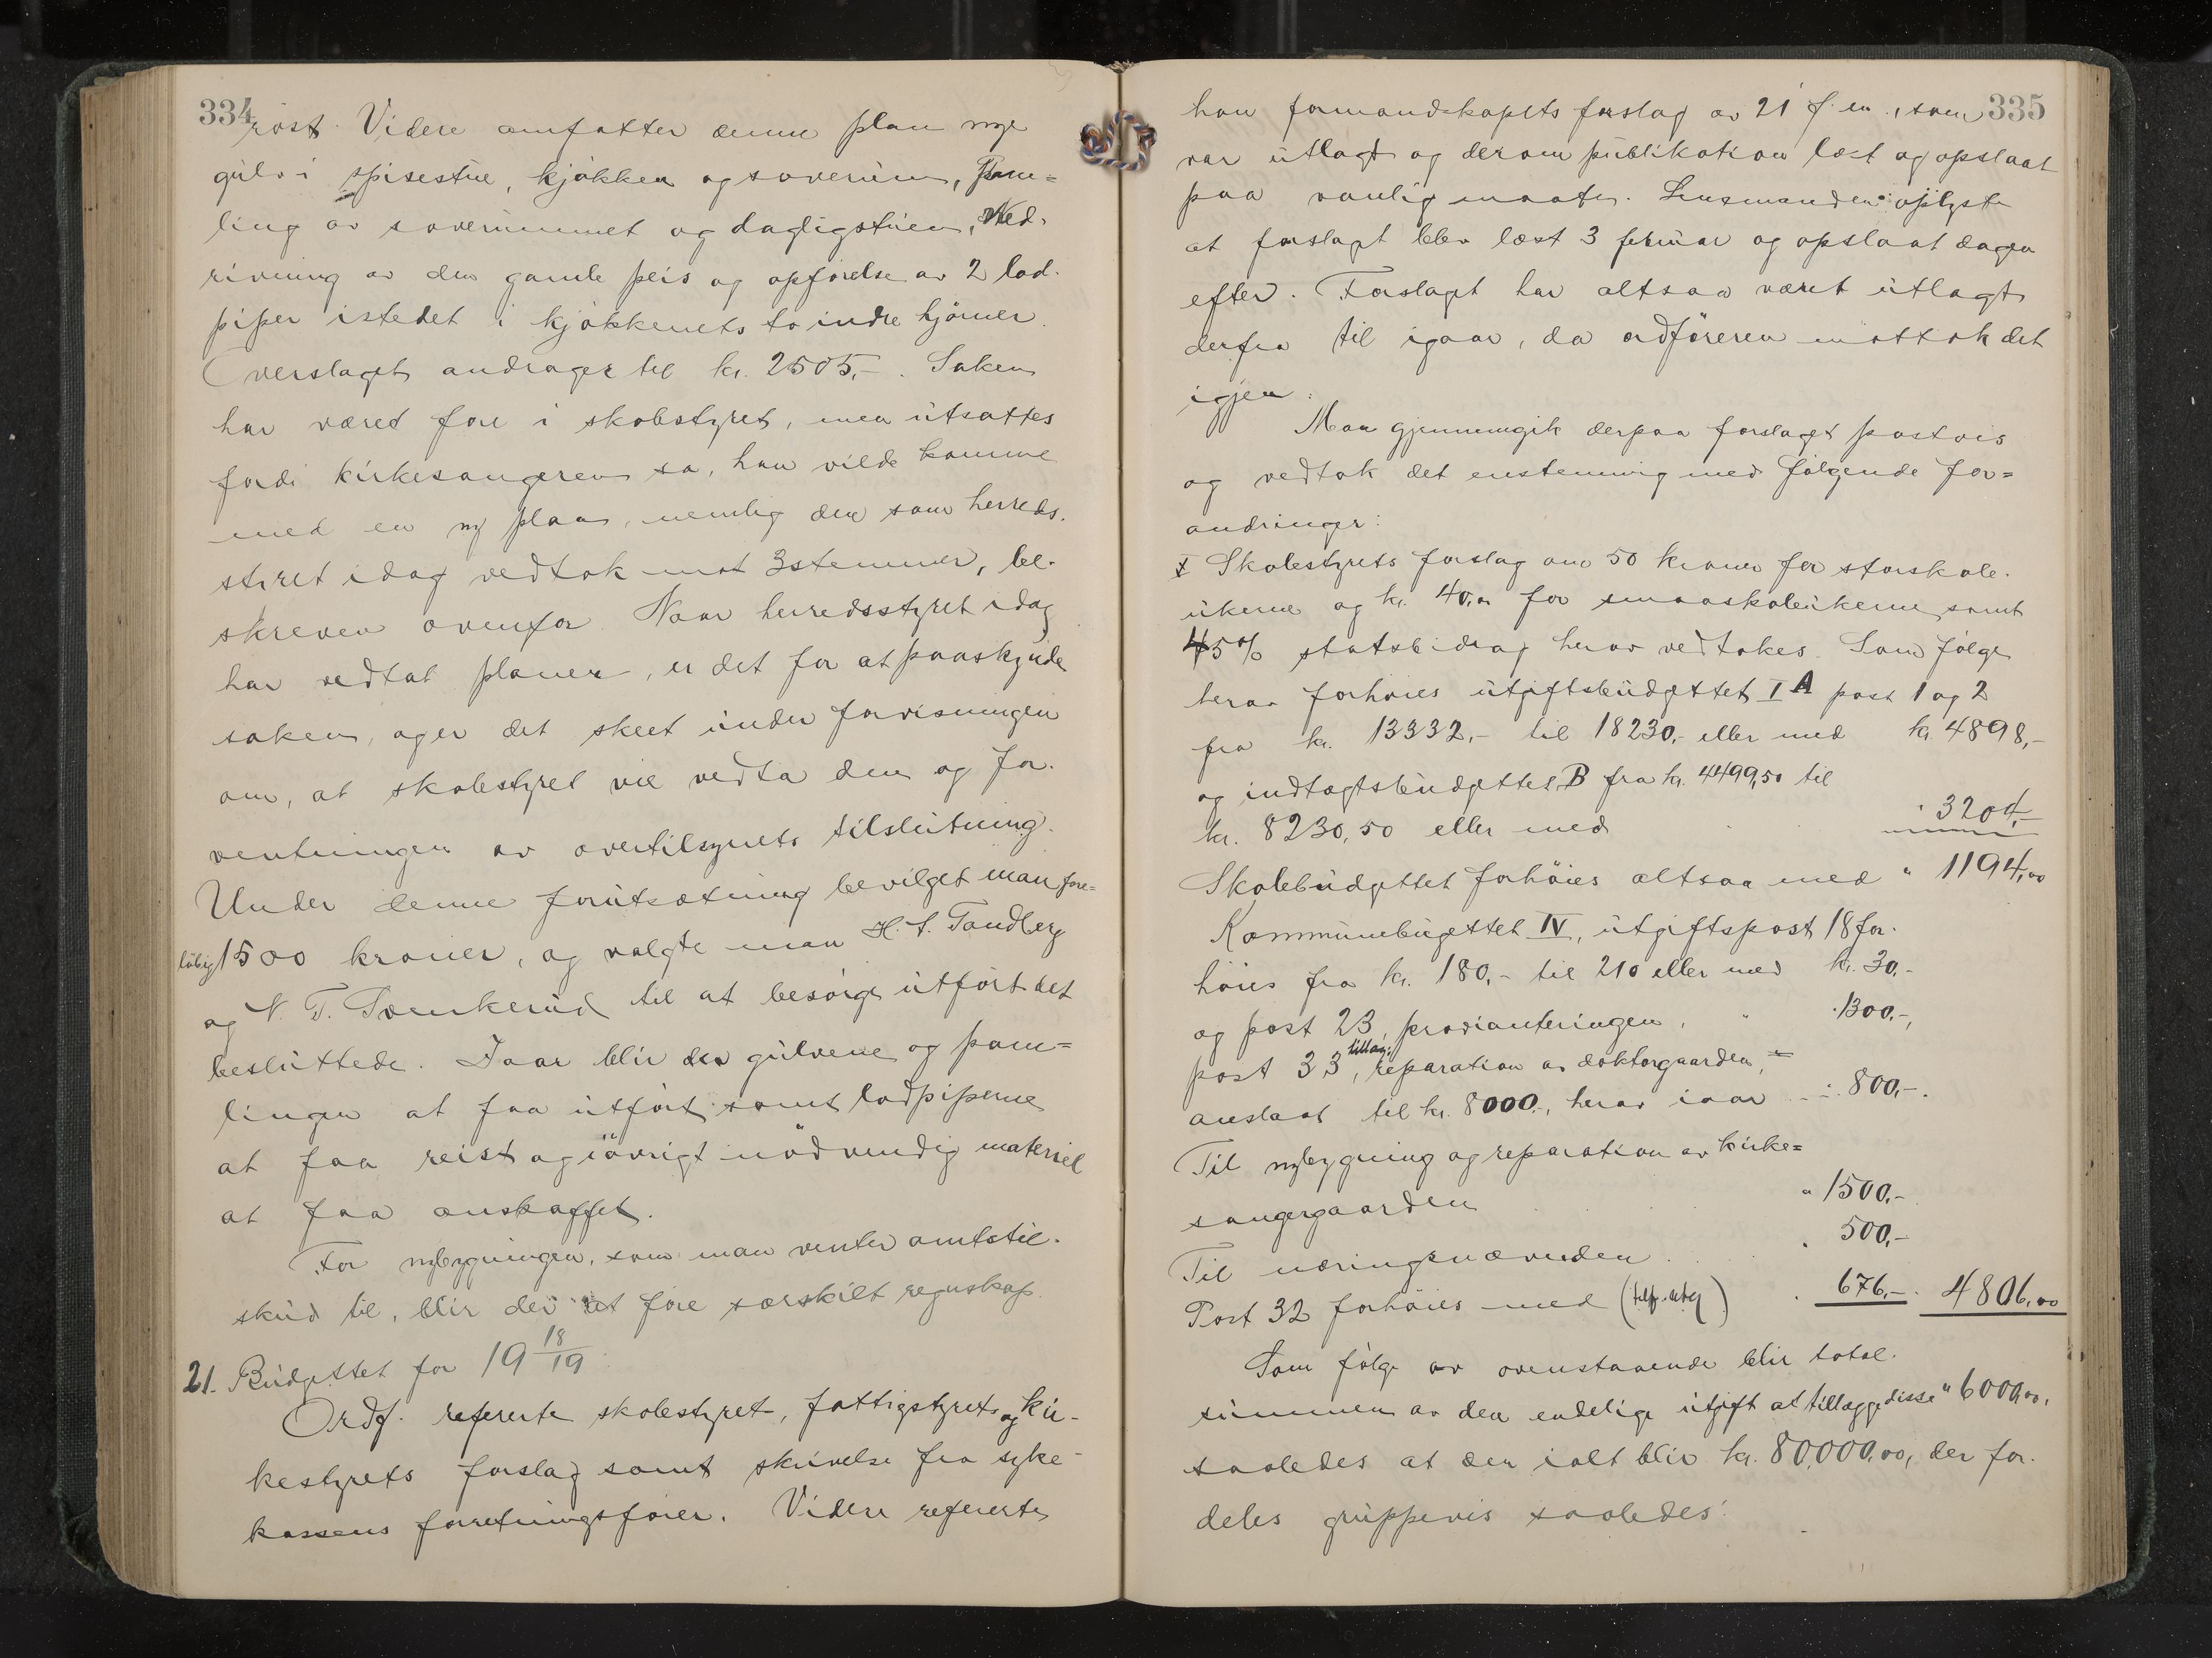 334
røst. Videre omfatter denne plan nye
gulv i spisestue, kjøkken og soverum, pane-
ling av soverummet og dagligstuen, Ned-
rivning av den gamle peis og opførelse av 2 lod-
piper istedet i kjøkkenets to indre hjørner.
Overslaget andrager til kr. 2505,-. Saken
har været fore i skolestyret, men utsattes
fordi kirkesangeren sa, han vilde komme
med en ny plan, nemlig den som herreds-
styret idag vedtok mot 3 stemmer, be-
skreven ovenfor. Naar herredsstyret idag
har vedtat planen, er det for at paaskynde
saken, og er det skeet under forvisningen
om, at skolestyret vil vedta den og for-
ventningen av overtilsynets tilslutning.
Under denne forutsætning bevilget man fore-
løbig 1500 kroner, og valgte man H. S. Tandberg
og N. T. Svenkerud til at besørge utført det
besluttede. Iaar blir der gulvene og pane-
lingen at faa utført samt lodpiperne
at faa reist og iøvrigt nødvendig materiel
at faa anskaffet.
For nybygningen, som man venter amtstil-
skud til, blir der at føre særskilt regnskap.
21. Budgettet for 19 18/19
Ordf. refererte skolestyret, fattigstyrets og kir-
kestyrets forslag samt skrivelse fra syke-
kassens forretningsfører. Videre refererte
335
han formandskapets forslag av 21 f. m., som
var utlagt og derom publikation læst og opslaat
paa vanlig maate. Lensmanden oplyste
at forslaget blev læst 3 februar og opslaat dagen
efter. Forslaget har altsaa været utlagt
derfra til igaar, da ordføreren mottok det
igjen.
Man gjennemgik derpaa forslaget postvis
og vedtok det enstemmig med følgende for-
andringer:
I Skolestyrets forslag om 50 kroner for storskole-
ukerne og kr. 40,00 for smaaskoleukerne samt
45% statsbidrag herav vedtokes. Som følge
herav forhøies utgiftsbudgettet I A post 1 og 2
fra kr. 13332,- til 18230,- eller med kr. 4898,-
og indtægtsbudgettet B fra kr. 4499,50 til
kr. 8230,50 eller med " 3204,-
Skolebudgettet forhøies altsaa med " 1194,00
Kommunebugettet IV, utgiftspost 18 for-
høies fra kr. 180,- til 210 eller med kr. 30,-
og post 23, provianteringen, " 1300,-,
post 33, tillæg: reparation av doktorgaarden,
anslaat til kr. 8000,-, herav iaar " 800,-.
Til nybygning og reparation av kirke-
sangergaarden " 1500,-
Til næringsnævnden " 500,-
Post 32 forhøies med ( ) " 676,- 4806,00
Som følge av ovenstaaende blir total-
summen av den endelige utgift at tillægge disse " 6000,00,
saaledes at den ialt blir kr. 80,000,00, der for-
deles gruppevis saaledes: